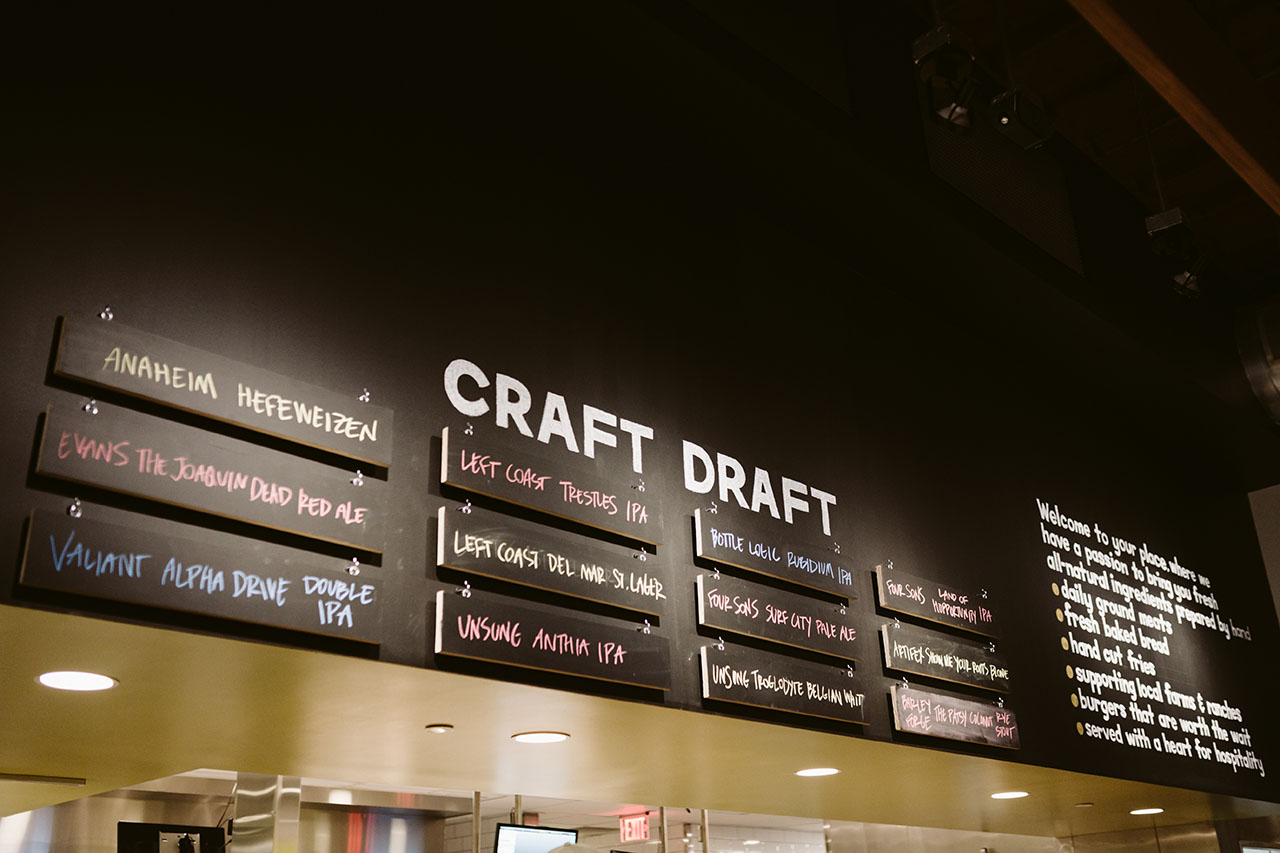 CRAFT DRAFT
ANAHEIM HEFEWEIZEN
EVANS THE JOAQUIN DEAD RED ALE
VALIANT ALPHA DRIVE DOUBLE
IPA
LEFT COAST TRESTLES IPA
LEFT COAST DEL MAR ST. LAGER
UNSUNG ANTHIA IPA
BOTTLE LOGIC RUBIDIUM IPA
FOUR SONS SURF CITY PALE ALE
UNSUNG TROGLODYTE BELGIAN WAIT
FOUR SONS LAND OF
HOPPORTUNITY IPA
ARTIFEX SHOW ME YOUR ROOTS BLONE
BARLEY THE PATSY COCONUT RYE
FORGE STOUT
Welcome to your place, where we
have a passion to bring you fresh
all-natural ingredients prepared by hand
daily ground meats
fresh baked bread
hand cut fries
supporting local farms & ranches
burgers that are worth the wait
served with a heart for hospitality
EXIT